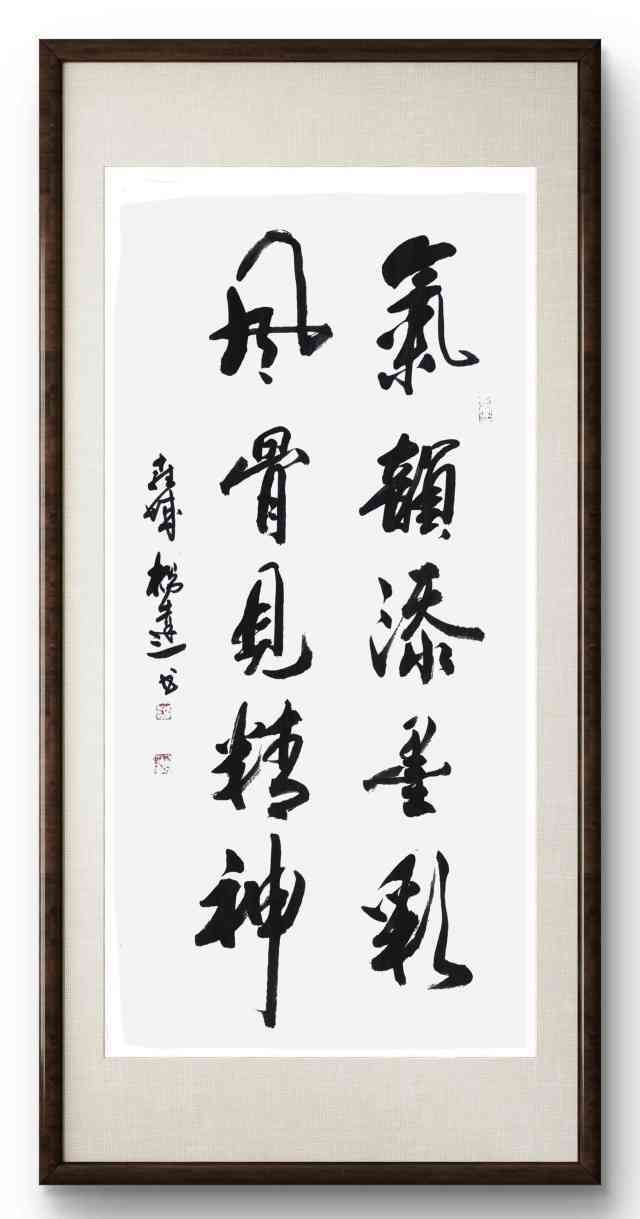 氣韻添墨彩
風骨見精神